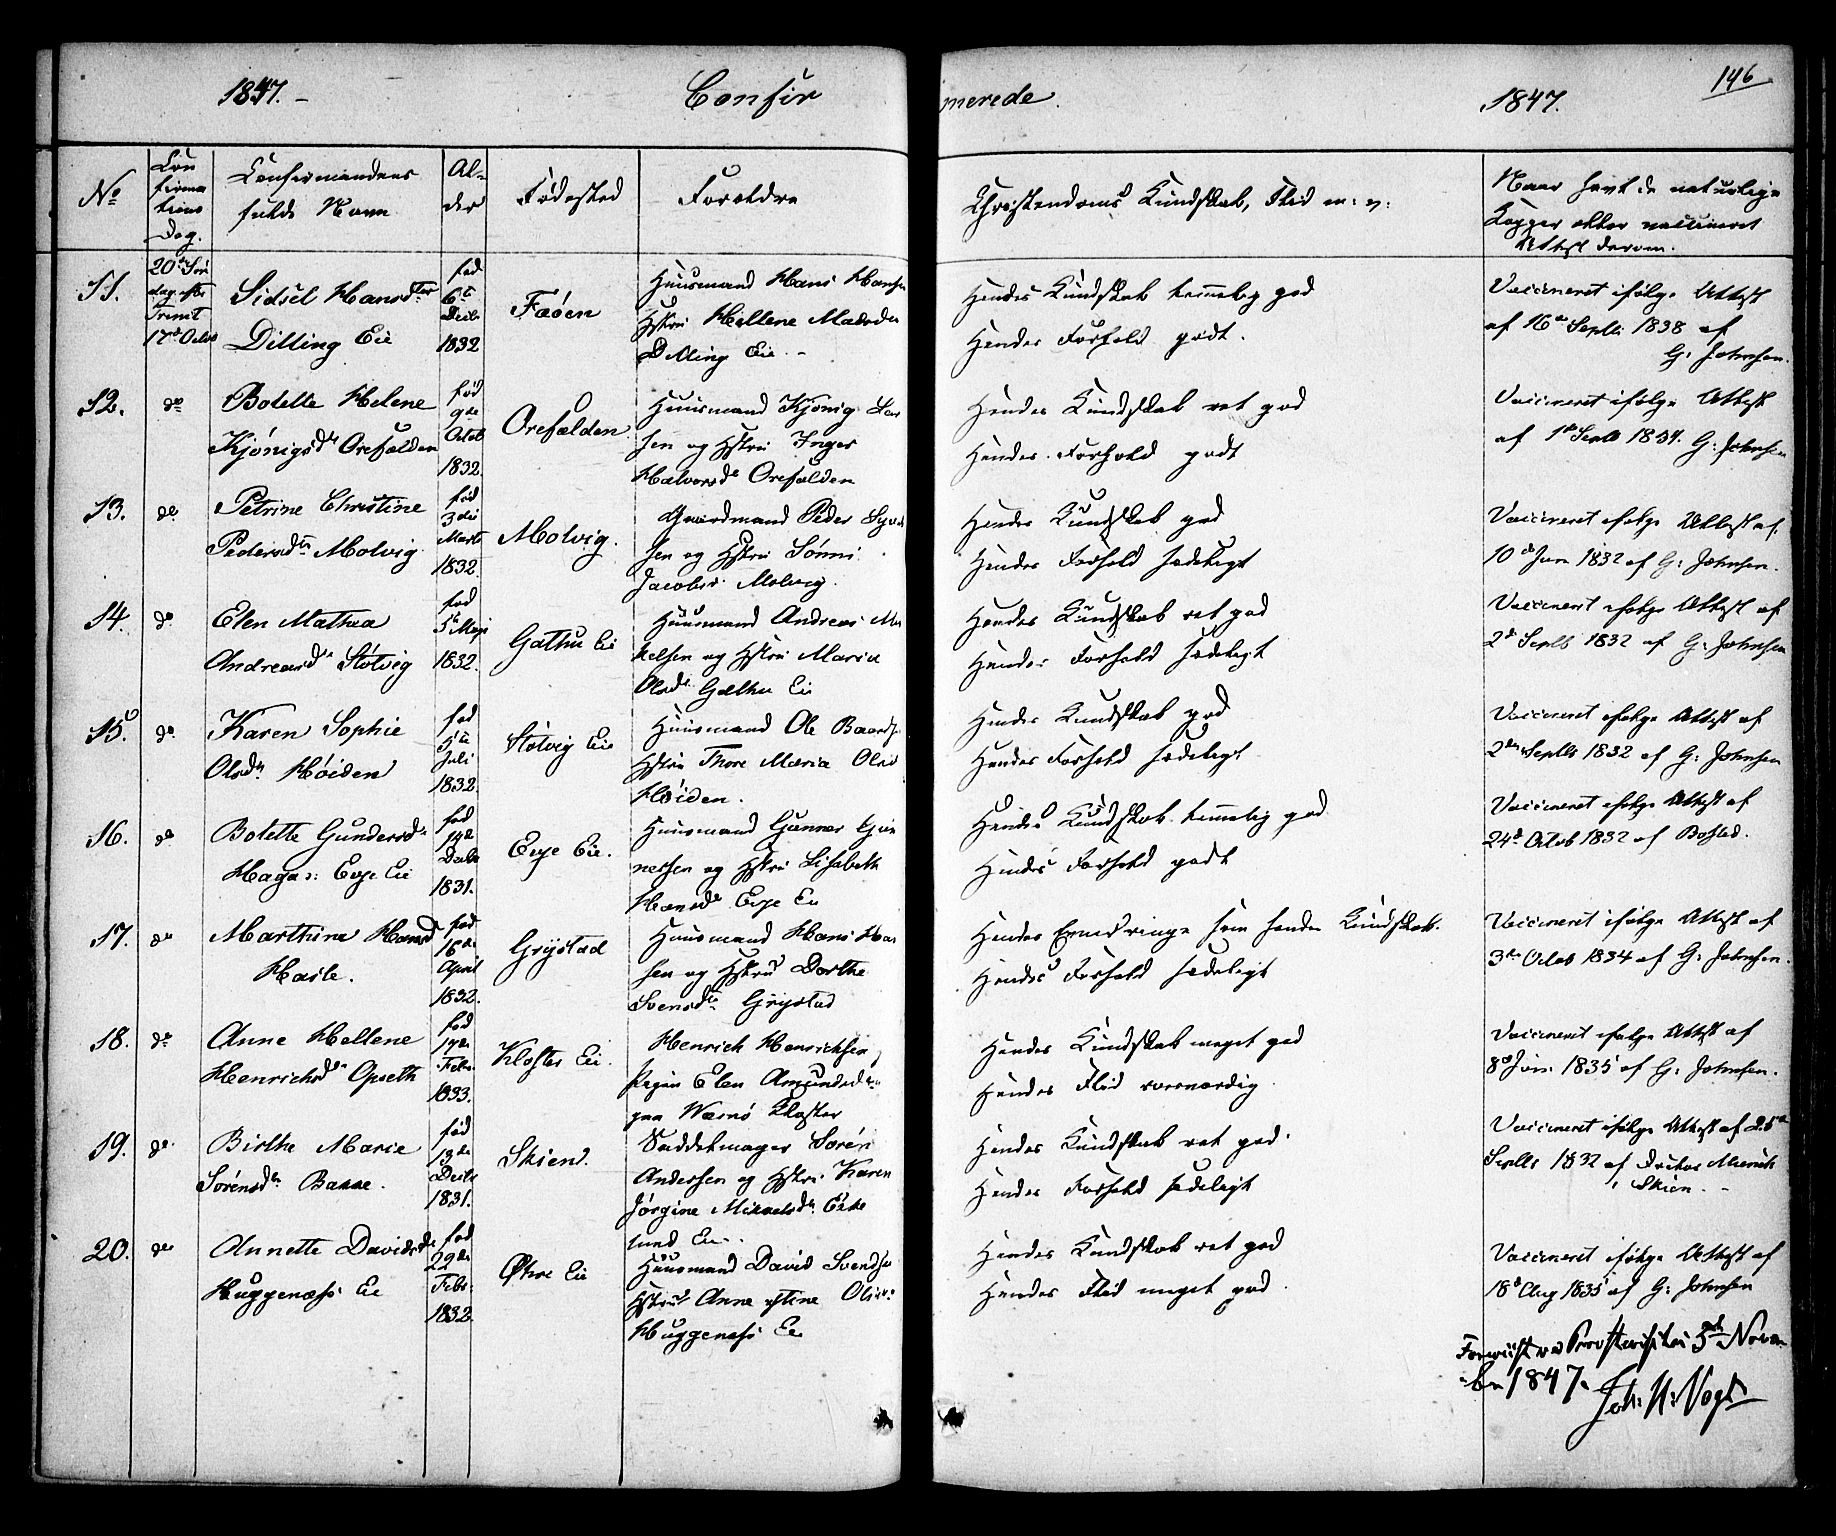 1847.
Confir
merede.
1847.
146
No
Confirmations Dag.
Confirmandens fulde Navn
Alder
Fødested
Forældre
Christendoms Kundskab, Flid m: v:
Naar havt de naturlige
Kopper eller vaccineret
Attest derom.
11.
20de Søndag efter Trinit 17de Octob
Sidsel Hansdtr
Dilling Eie
fød 6te Decbr 1832
Faöen
Huusmand Hans Hansen
Hstru Hellene Madsdr
Dilling Eie. -
Hendes Kundskab temmelig god
Hendes Forhold godt.
Vaccineret ifølge Attest
af 16de Septb 1838 af
G: Johnsen.
12.
do
Bolette Helene
Kjønigsdr Orefalden
fød 9de Octob 1832.
Orefalden
Huusmand Kjønig Lar
sen og Hstru Inger
Halvorsdr Orefalden
Hendes Kundskab ret god
Hendes Forhold godt
Vaccineret ifølge Attest
af 1de Septb 1834. G: Johnsen
13.
do
Petrine Christine
Pedersdtr Molvig
fød 3die Marts 1832.
Molvig.
Gaardmand Peder Syver
sen og Hstru Sønni
Jacobsd. Molvig.
Hendes Kundskab god
Hendes Forhold sædeligt
Vaccineret ifølge Attest af
10de Jun 1832 af G: Johnsen.
14.
do
Elen Mathea
Andreasdr Støtvig
fød 5te Maji 1832.
Gathu Eie
Huusmand Andreas Mi
kelsen og Hstru Maria
Olsdr Gathu Eie
Hendes Kundskab ret god
Hendes Forhold sædeligt
Vaccineret ifølge Attest af
2de Septb 1832 af G: Johnsen
15.
do
Karen Sophie
Olsdr Høiden
fød 5te Juli 1832.
Støtvig Eie
Huusmand Ole Baards
Hstru Thore Maria Olsd
Høiden.
Hendes Kundskab god
Hendes Forhold sædeligt
Vaccineret ifølge Attest af
2den Septb 1832 af G: Johnsen
16.
do
Bolette Gundersdr
Haga: Evje Eie
fød 14de Decbr 1831.
Evje Eie.
Huusmand Gunner Gun
nersen og Hstru Lisabeth
Hansdr Evje Eie
Hendes Kundskab temmelig god
Hendes Forhold godt
Vaccineret ifølge Attest af
24de Octob 1832 af Bosted.
17.
do
Marthine Hansd
Hasle.
fød 16de April 1832.
Grystad
Huusmand Hans Han
sen og Hstru Dorthe
Svensdtr Grystad
Hendes Evne ringe som hendes Kundskab.
Hendes Forhold sædeligt
Vaccineret ifølge Attest af
3die Octob 1834 af G: Johnsen.
18.
do
Anne Hellene
Henrichsdr Opseth
fød 17de Febr. 1833.
Kloster Eie.
Henrich Henrichsen,
Pigen Elen Amundsdr
paa Wærnø Kloster
Hendes Kundskab meget god
Hendes Flid roesværdig
Vaccineret ifølge Attest af
8de Juni 1835 af G: Johnsen.
19.
do
Birthe Marie
Sørensdtr Bakke.
fød 13de Decbr 1831.
Skiend.
Saddelmager Søren
Andersen og Hstru Karen
Jørgine Mikaelsdr. Eske
lund Eie.
Hendes Kundskab ret god.
Hendes Forhold sædeligt
Vaccineret ifølge Attest af 25de
Septb 1832 af Doctor Munch
i Skien. -
20.
do
Annette Davidsdr
Huggenæss Eie
fød 29de Febr. 1832.
Øhre Eie
Huusmand David Svendsen
Hstru Anne Stine Olsdr
Huggenæss Eie
Hendes Kundskab ret god
Hendes Flid meget god
Vaccineret ifølge Attest af
18de Aug 1835 af G: Johnsen
Foreviist ved Provstevisitats 5te Novem
ber 1847.
Joh: H: Vogt